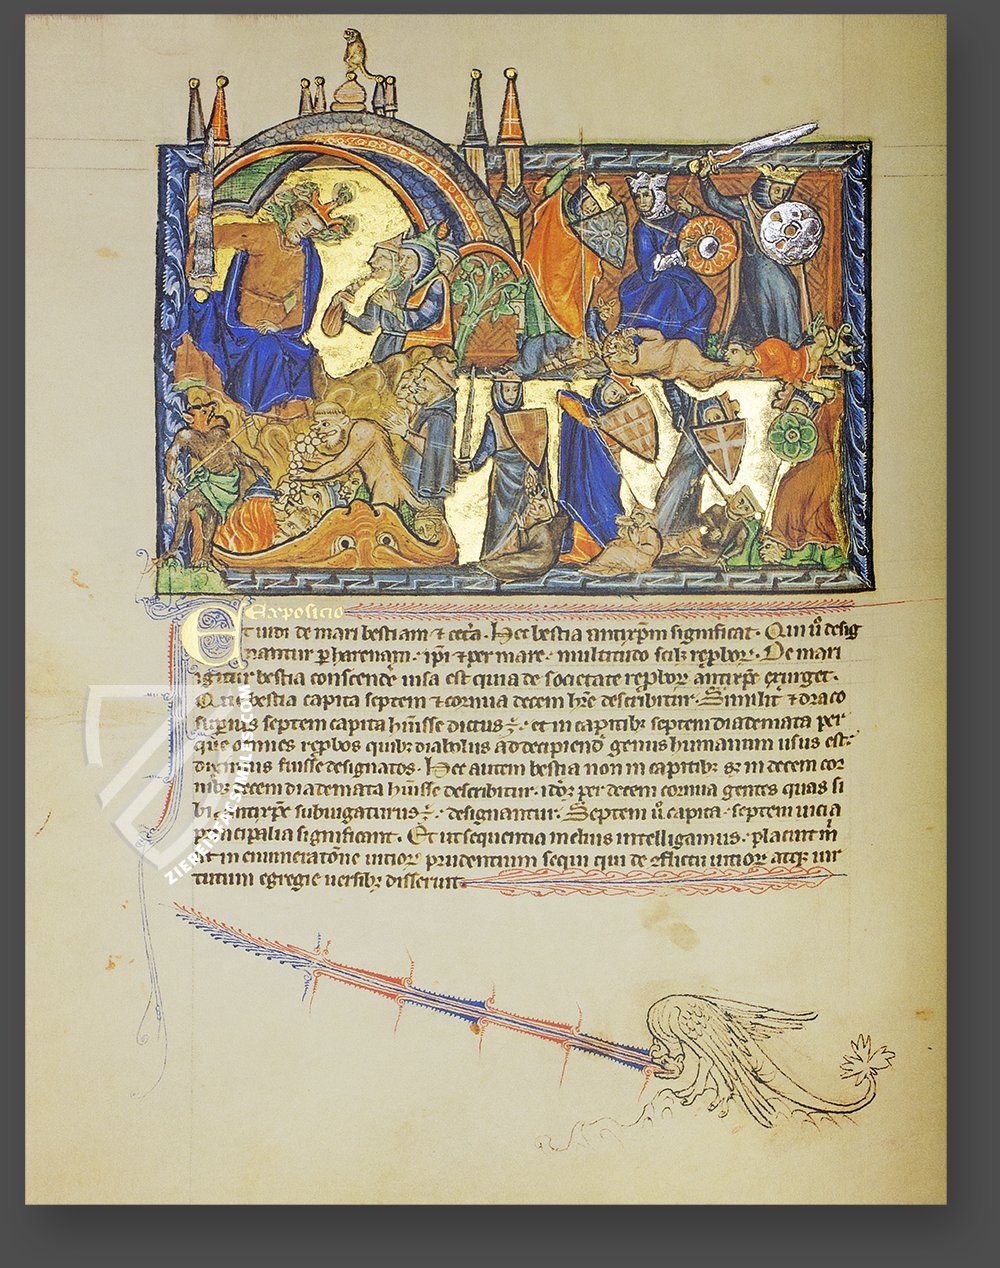 Expositio
Et uidi de mari bestiam ⁊ cetꝰa. Hec bestia antixp̄m significat. Qui ũ desig
nantur ꝑ harenam. ip̄i ⁊ per mare. multitudo scilꝫ rep̄boꝝ. De mari
igitur bestia conscende uisa est quia de societate rep̄boꝝ antixp̄c exurget.
Que bestia capita septem ⁊ cornua decem hr̄e describitur. Similit̾ ⁊ draco
suꝑius septem capita huisse dictus ē. et in capitibꝫ septem diademata per
que omnes rep̄bos quibꝫ diabolus ad decipiend̾ genus humanum usus est.
diximus fuisse designatos. Hec autem bestia non in capitibꝫ sꝫ in decem cor
nibꝫ decem diademata huisse describitur. per decem cornua gentes quas si
bi antixp̄c subiugaturus ē. designantur. Septem ũ capita. septem uicia
principalia significant. Et ut sequentia melius intelligamus. placuit m̄
ut in enumeratōne uitioꝝ prudentium sequi qui de  uitioꝝ atqꝫ uir
tutum egregie uersibꝫ disseruit.
ZIEREIS FACSIMILES.COM